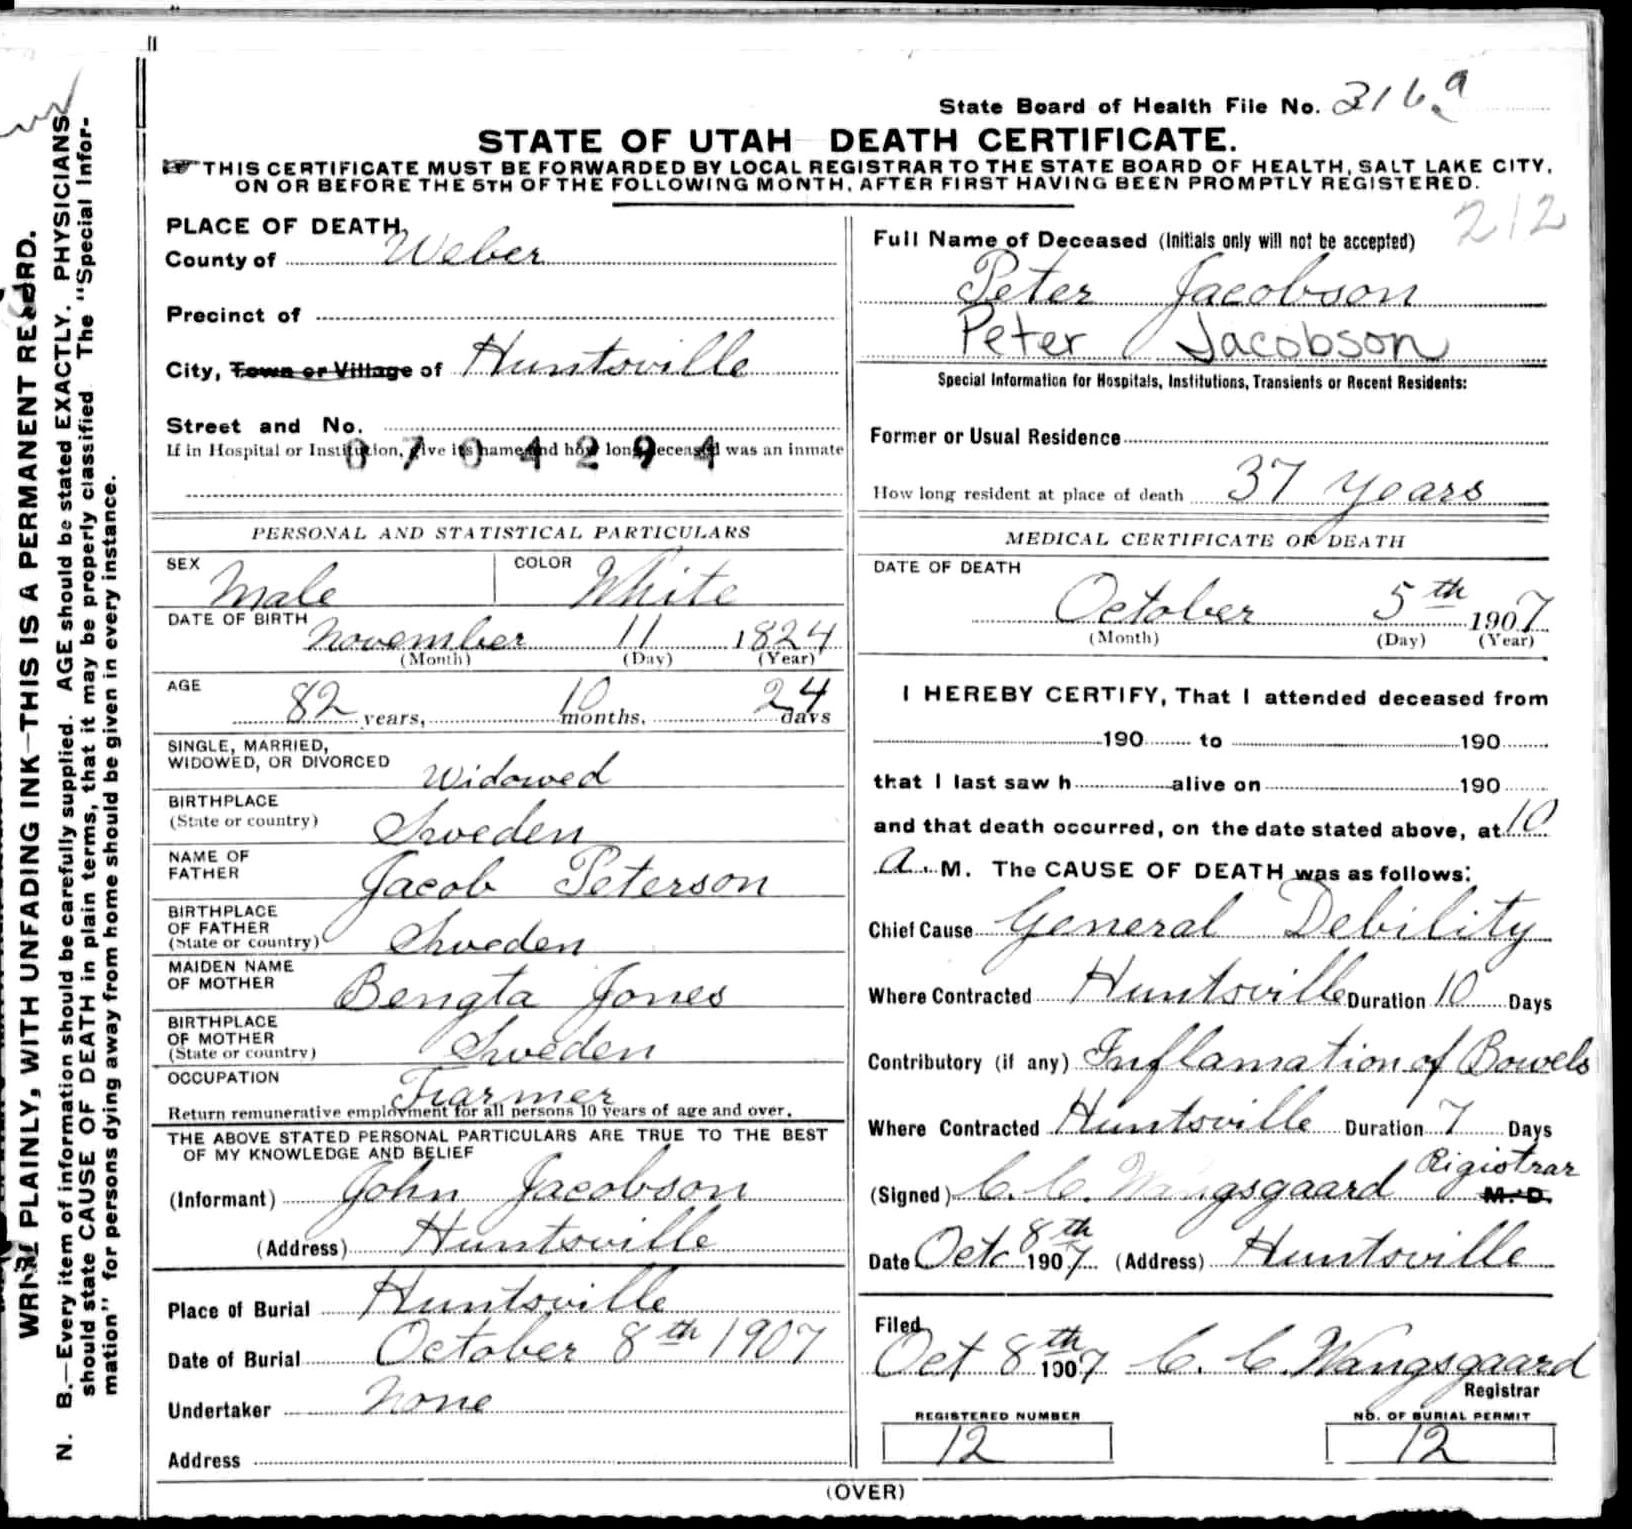 State Board of Health File No. 316a
STATE OF UTAH DEATH CERTIFICATE.
THIS CERTIFICATE MUST BE FORWARDED BY LOCAL REGISTRAR TO THE STATE BOARD OF HEALTH, SALT LAKE CITY,
ON OR BEFORE THE 5TH OF THE FOLLOWING MONTH, AFTER FIRST HAVING BEEN PROMPTLY REGISTERED.
212
WRITE PLAINLY, WITH UNFADING INK—THIS IS A PERMANENT RECORD.
N. B.—Every item of information should be carefully supplied. AGE should be stated EXACTLY. PHYSICIANS
should state CAUSE OF DEATH in plain terms, that it may be properly classified. The "Special Infor-
mation" for persons dying away from home should be given in every instance.
PLACE OF DEATH,
County of Weber
Precinct of
City, Town or Village of Huntsville
Street and No.
0704294
If in Hospital or Institution, give its name and how long deceased was an inmate
PERSONAL AND STATISTICAL PARTICULARS
SEX Male COLOR White
DATE OF BIRTH November 11 1824
(Month) (Day) (Year)
AGE 82 years, 10 months, 24 days
SINGLE, MARRIED,
WIDOWED, OR DIVORCED Widowed
BIRTHPLACE
(State or country) Sweden
NAME OF
FATHER Jacob Peterson
BIRTHPLACE
OF FATHER
(State or country) Sweden
MAIDEN NAME
OF MOTHER Bengta Jones
BIRTHPLACE
OF MOTHER
(State or country) Sweden
OCCUPATION Farmer
Return remunerative employment for all persons 10 years of age and over.
THE ABOVE STATED PERSONAL PARTICULARS ARE TRUE TO THE BEST
OF MY KNOWLEDGE AND BELIEF
(Informant) John Jacobson
(Address) Huntsville
Place of Burial Huntsville
Date of Burial October 8th 1907
Undertaker None
Address
Full Name of Deceased (Initials only will not be accepted)
Peter Jacobson
Peter Jacobson
Special Information for Hospitals, Institutions, Transients or Recent Residents:
Former or Usual Residence
How long resident at place of death 37 years
MEDICAL CERTIFICATE OF DEATH
DATE OF DEATH
October 5th 1907
(Month) (Day) (Year)
I HEREBY CERTIFY, That I attended deceased from
190 to 190
that I last saw h alive on 190
and that death occurred, on the date stated above, at 10
a. M. The CAUSE OF DEATH was as follows:
Chief Cause General Debility
Where Contracted Huntsville Duration 10 Days
Contributory (if any) Inflamation of Bowels
Where Contracted Huntsville Duration 7 Days
Rigistrar
(Signed) C. C. Wangsgaard M. D.
Date Oct. 8th 1907 (Address) Huntsville
Filed
Oct 8th 1907 C. C. Wangsgaard
Registrar
REGISTERED NUMBER NO. OF BURIAL PERMIT
12 12
(OVER)